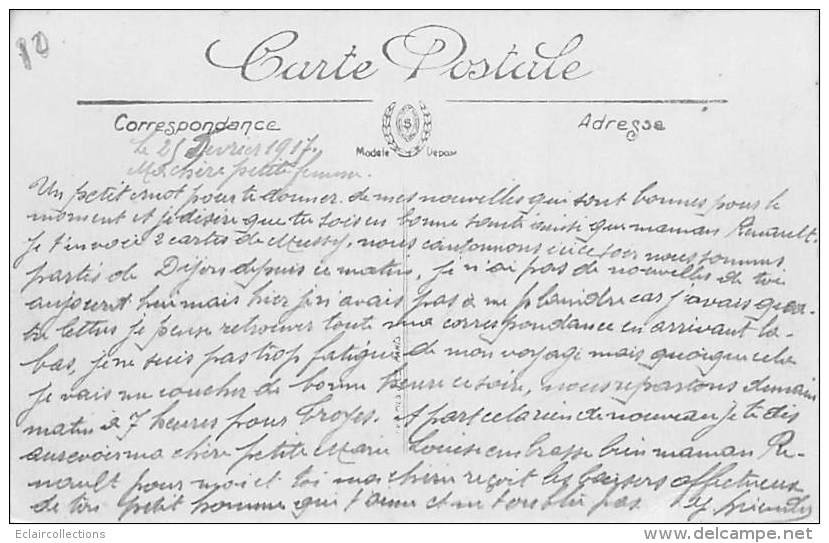 80
Carte Postale
Correspondance
Adresse
Modèle Déposé
S
le 25 Fevrier 1917.
Ma chère petite femme.
Un petit mot pour te donner de mes nouvelles qui sont bonnes pour le
moment et je désire que tu sois en bonne santé ainsi que maman Renault.
Je t'envoie 2 cartes de Mussy, nous cantonnons ici ce soir nous sommes
partis de Dijon depuis ce matin, je n'ai pas de nouvelles de toi
aujourd hui mais hier je n'avais pas à me plaindre car j'avais qua-
tre lettres je pense retrouver toute ma correspondance en arrivant la-
bas, je ne suis pas trop fatigué de mon voyage mais quoique cela
je vais me coucher de bonne heure ce soire, nous repartons demain
matin à 7 heures pour Troyes. A part cela rien de nouveau je te dis
aurevoir ma chère petite Marie Louise embrasse bien maman Re-
nault pour moi et toi ma chère reçoit les baisers affectueux
de ton petit homme qui t'aime et ne t'oublu pas.
Eclaircollections
www.delcampe.net